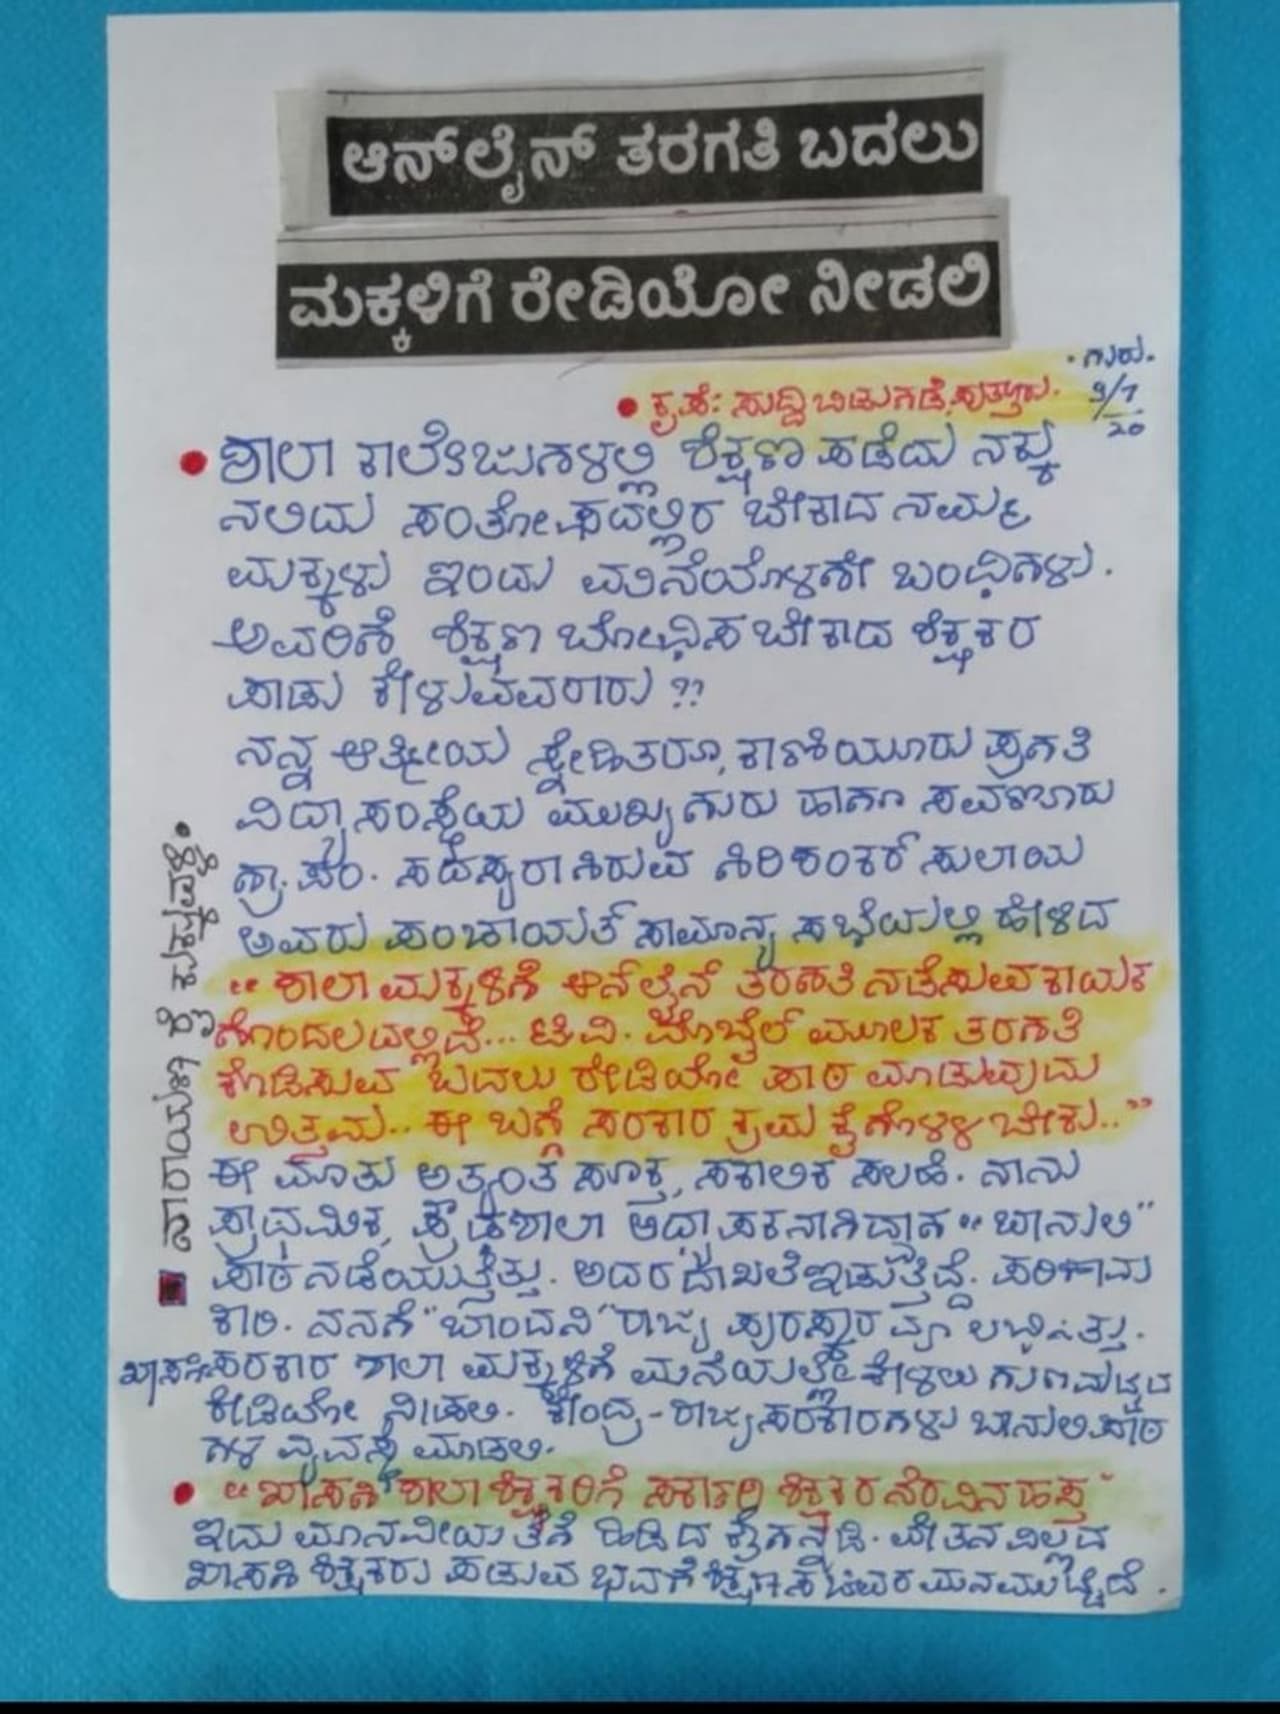 ಆನ್‌ಲೈನ್ ತರಗತಿ ಬದಲು
ಮಕ್ಕಳಿಗೆ ರೇಡಿಯೋ ನೀಡಲಿ
• ಗುರು.
• ಕೃಪೆ: ಸುದ್ದಿ ಬಿಡುಗಡೆ, ಪುತ್ತೂರು. 9/7/20
• ಶಾಲಾ ಕಾಲೇಜುಗಳಲ್ಲಿ ಶಿಕ್ಷಣ ಪಡೆದು ನಕ್ಕು
ನಲಿದು ಸಂತೋಷದಲ್ಲಿರ ಬೇಕಾದ ನಮ್ಮ
ಮಕ್ಕಳು ಇಂದು ಮನೆಯೊಳಗೇ ಬಂಧಿಗಳು.
ಅವರಿಗೆ ಶಿಕ್ಷಣ ಬೋಧಿಸ ಬೇಕಾದ ಶಿಕ್ಷಕರ
ಪಾಡು ಕೇಳುವವರಾರು ??
ನನ್ನ ಆತ್ಮೀಯ ಸ್ನೇಹಿತರೂ, ಕಾಣಿಯೂರು ಪ್ರಗತಿ
ವಿದ್ಯಾಸಂಸ್ಥೆಯ ಮುಖ್ಯಗುರು ಹಾಗೂ ಸವಣೂರು
ಗ್ರಾ. ಪಂ. ಸದಸ್ಯರಾಗಿರುವ ಗಿರಿಶಂಕರ್ ಸುಲಾಯ
ಅವರು ಪಂಚಾಯತ್ ಸಾಮಾನ್ಯ ಸಭೆಯಲ್ಲಿ ಹೇಳಿದ
"ಶಾಲಾ ಮಕ್ಕಳಿಗೆ ಆನ್‌ಲೈನ್ ತರಗತಿ ನಡೆಸುವ ಕಾಯಕ
ಗೊಂದಲದಲ್ಲಿದೆ... ಟಿ.ವಿ. ಮೊಬೈಲ್ ಮೂಲಕ ತರಗತಿ
ಕೊಡಿಸುವ ಬದಲು ರೇಡಿಯೋ ಪಾಠ ಮಾಡುವುದು
ಉತ್ತಮ.. ಈ ಬಗ್ಗೆ ಸರಕಾರ ಕ್ರಮ ಕೈಗೊಳ್ಳಬೇಕು.."
ಈ ಮಾತು ಅತ್ಯಂತ ಸೂಕ್ತ, ಸಕಾಲಿಕ ಸಲಹೆ. ನಾನು
ಪ್ರಾಥಮಿಕ, ಪ್ರೌಢಶಾಲಾ ಅಧ್ಯಾಪಕನಾಗಿದ್ದಾಗ "ಬಾನುಲಿ"
ಪಾಠ ನಡೆಯುತ್ತಿತ್ತು. ಅದರ ದಾಖಲೆ ಇಡುತ್ತಿದ್ದೆ. ಪರಿಣಾಮ
ಕಾರಿ. ನನಗೆ "ಬಾಂದನಿ" ರಾಜ್ಯ ಪುರಸ್ಕಾರವೂ ಲಭಿಸಿತ್ತು.
ಖಾಸಗಿ ಸರಕಾರ ಶಾಲಾ ಮಕ್ಕಳಿಗೆ ಮನೆಯಲ್ಲೇ ಕೇಳಲು ಗುಣಮಟ್ಟದ
ರೇಡಿಯೋ ನೀಡಲಿ. ಕೇಂದ್ರ - ರಾಜ್ಯ ಸರಕಾರಗಳು ಬಾನುಲಿ ಪಾಠ
ಗಳ ವ್ಯವಸ್ಥೆ ಮಾಡಲಿ.
• "ಖಾಸಗಿ ಶಾಲಾ ಶಿಕ್ಷಕರಿಗೆ ಸರ್ಕಾರಿ ಶಿಕ್ಷಕರ ನೆರವಿನ ಹಸ್ತ"
ಇದು ಮಾನವೀಯತೆಗೆ ಹಿಡಿದ ಕೈಗನ್ನಡಿ. ವೇತನವಿಲ್ಲದ
ಖಾಸಗಿ ಶಿಕ್ಷಕರು ಪಡುವ ಬವಣೆ ಶಿಕ್ಷಣ ಸಚಿವರ ಮನಮುಟ್ಟಿದೆ.
ನಾರಾಯಣ ರೈ ಕುಕ್ಕುವಳ್ಳಿ.